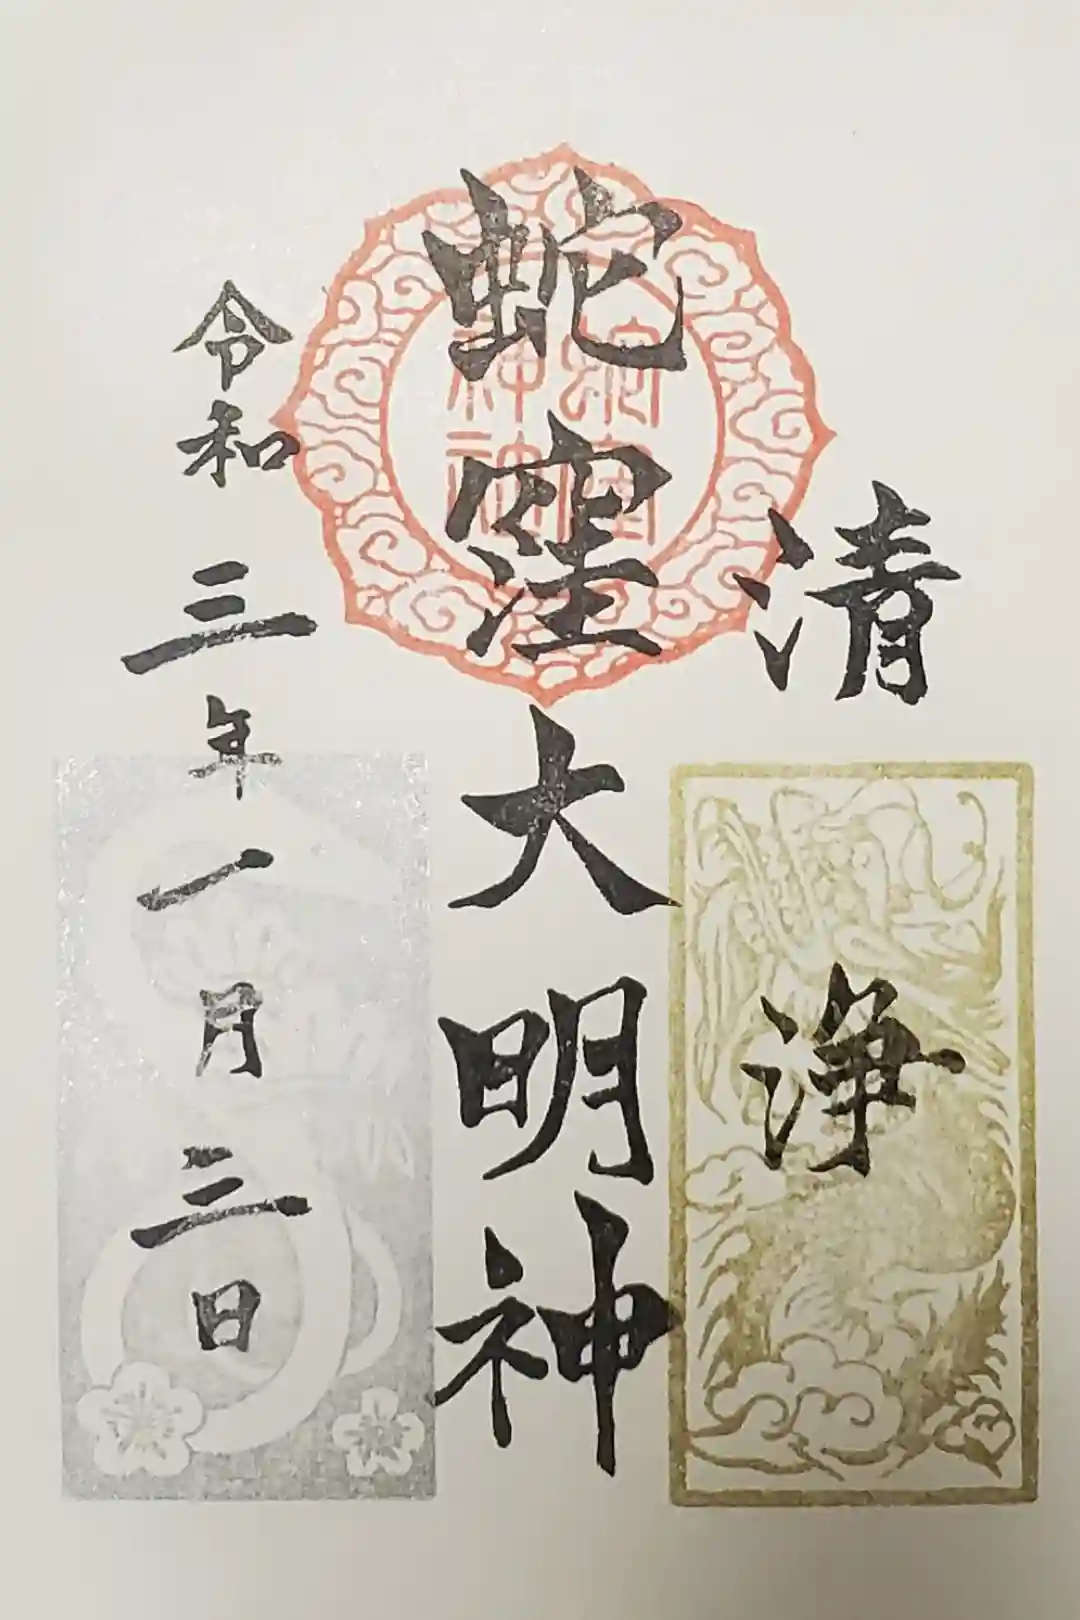 清浄
蛇窪大明神
令和三年一月三日